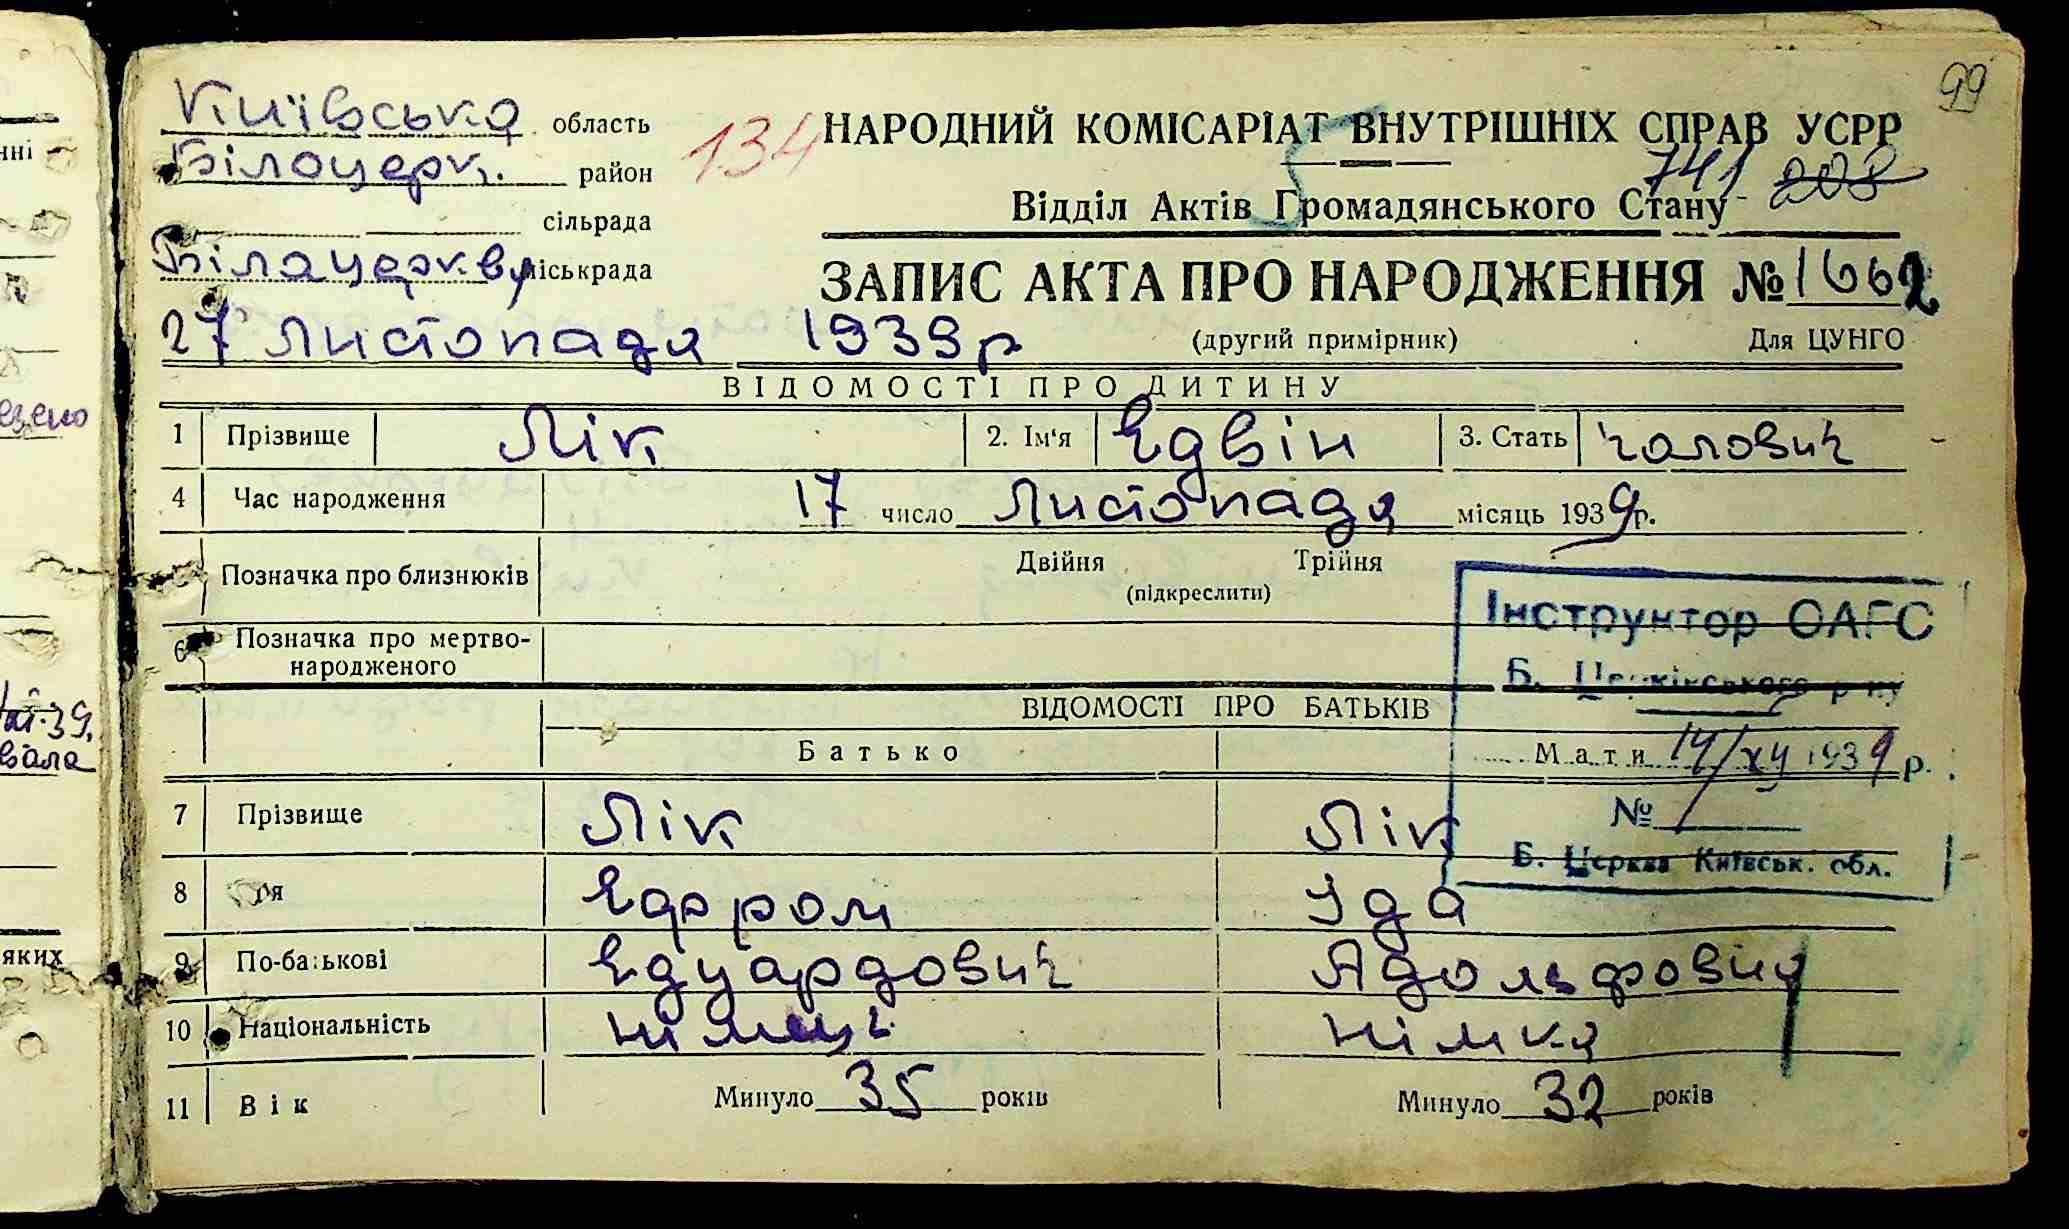 99
Київська область
Білоцерк. район
134
сільрада
Білоцеркву міськрада
27 Листопада 1939 р
НАРОДНИЙ КОМІСАРІАТ ВНУТРІШНІХ СПРАВ УСРР
741 208
Відділ Актів Громадянського Стану
ЗАПИС АКТА ПРО НАРОДЖЕННЯ № 1662
(другий примірник) Для ЦУНГО
ВІДОМОСТІ ПРО ДИТИНУ
1 Прізвище Лік 2. Ім'я Едвін 3. Стать чолович
4 Час народження 17 число Листопада місяць 1939 р.
Позначка про близнюків Двійня Трійня
(підкреслити)
6 Позначка про мертво-
народженого
Інструктор ОАГС
Б. Церківського р-ну
14/XII 1939 р.
№
Б. Церква Київськ. обл.
ВІДОМОСТІ ПРО БАТЬКІВ
Батько Мати
7 Прізвище Лік Лік
8 Ефром Іда
9 По-батькові Едуардович Адольфовна
10 Національність німець німка
11 Вік Минуло 35 років Минуло 32 років